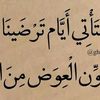 ستَأتي أَيَّام تَرْضَينَا
وِّن العِوَض مِن ا